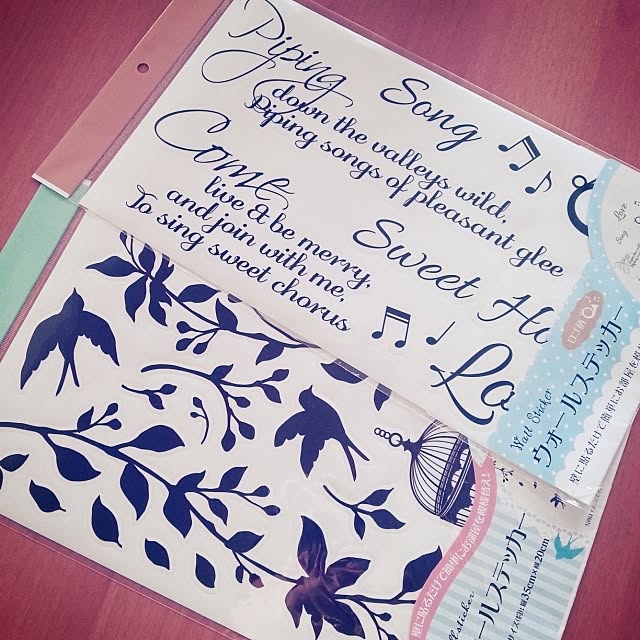 Piping
Song
down the valleys wild,
Piping songs of pleasant glee
Come
live & be merry,
and join with me,
To sing sweet chorus
Sweet
Love
Song
ロゴ柄
Wall Sticker
ウォールステッカー
壁に貼るだけで簡単にお部屋を模様
壁に貼るだけで簡単にお部屋を模様替え!
sticker
ールステッカー
縦35cm×横20cm